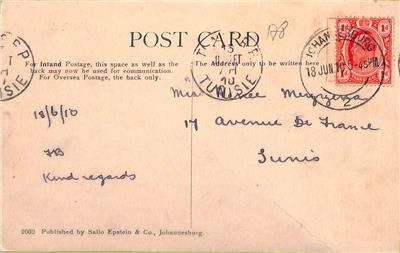 178
POST CARD
For Inland Postage, this space as well as the
back may now be used for communication.
For Oversea Postage, the back only.
The Address only to be written here
JOHANNESBURG
18 JUN 10 9-45PM
2
TUNISIE
18/6/10
17 Avenue De France
Tunis
Kind regards
2062 Published by Sallo Epstein & Co., Johannesburg.